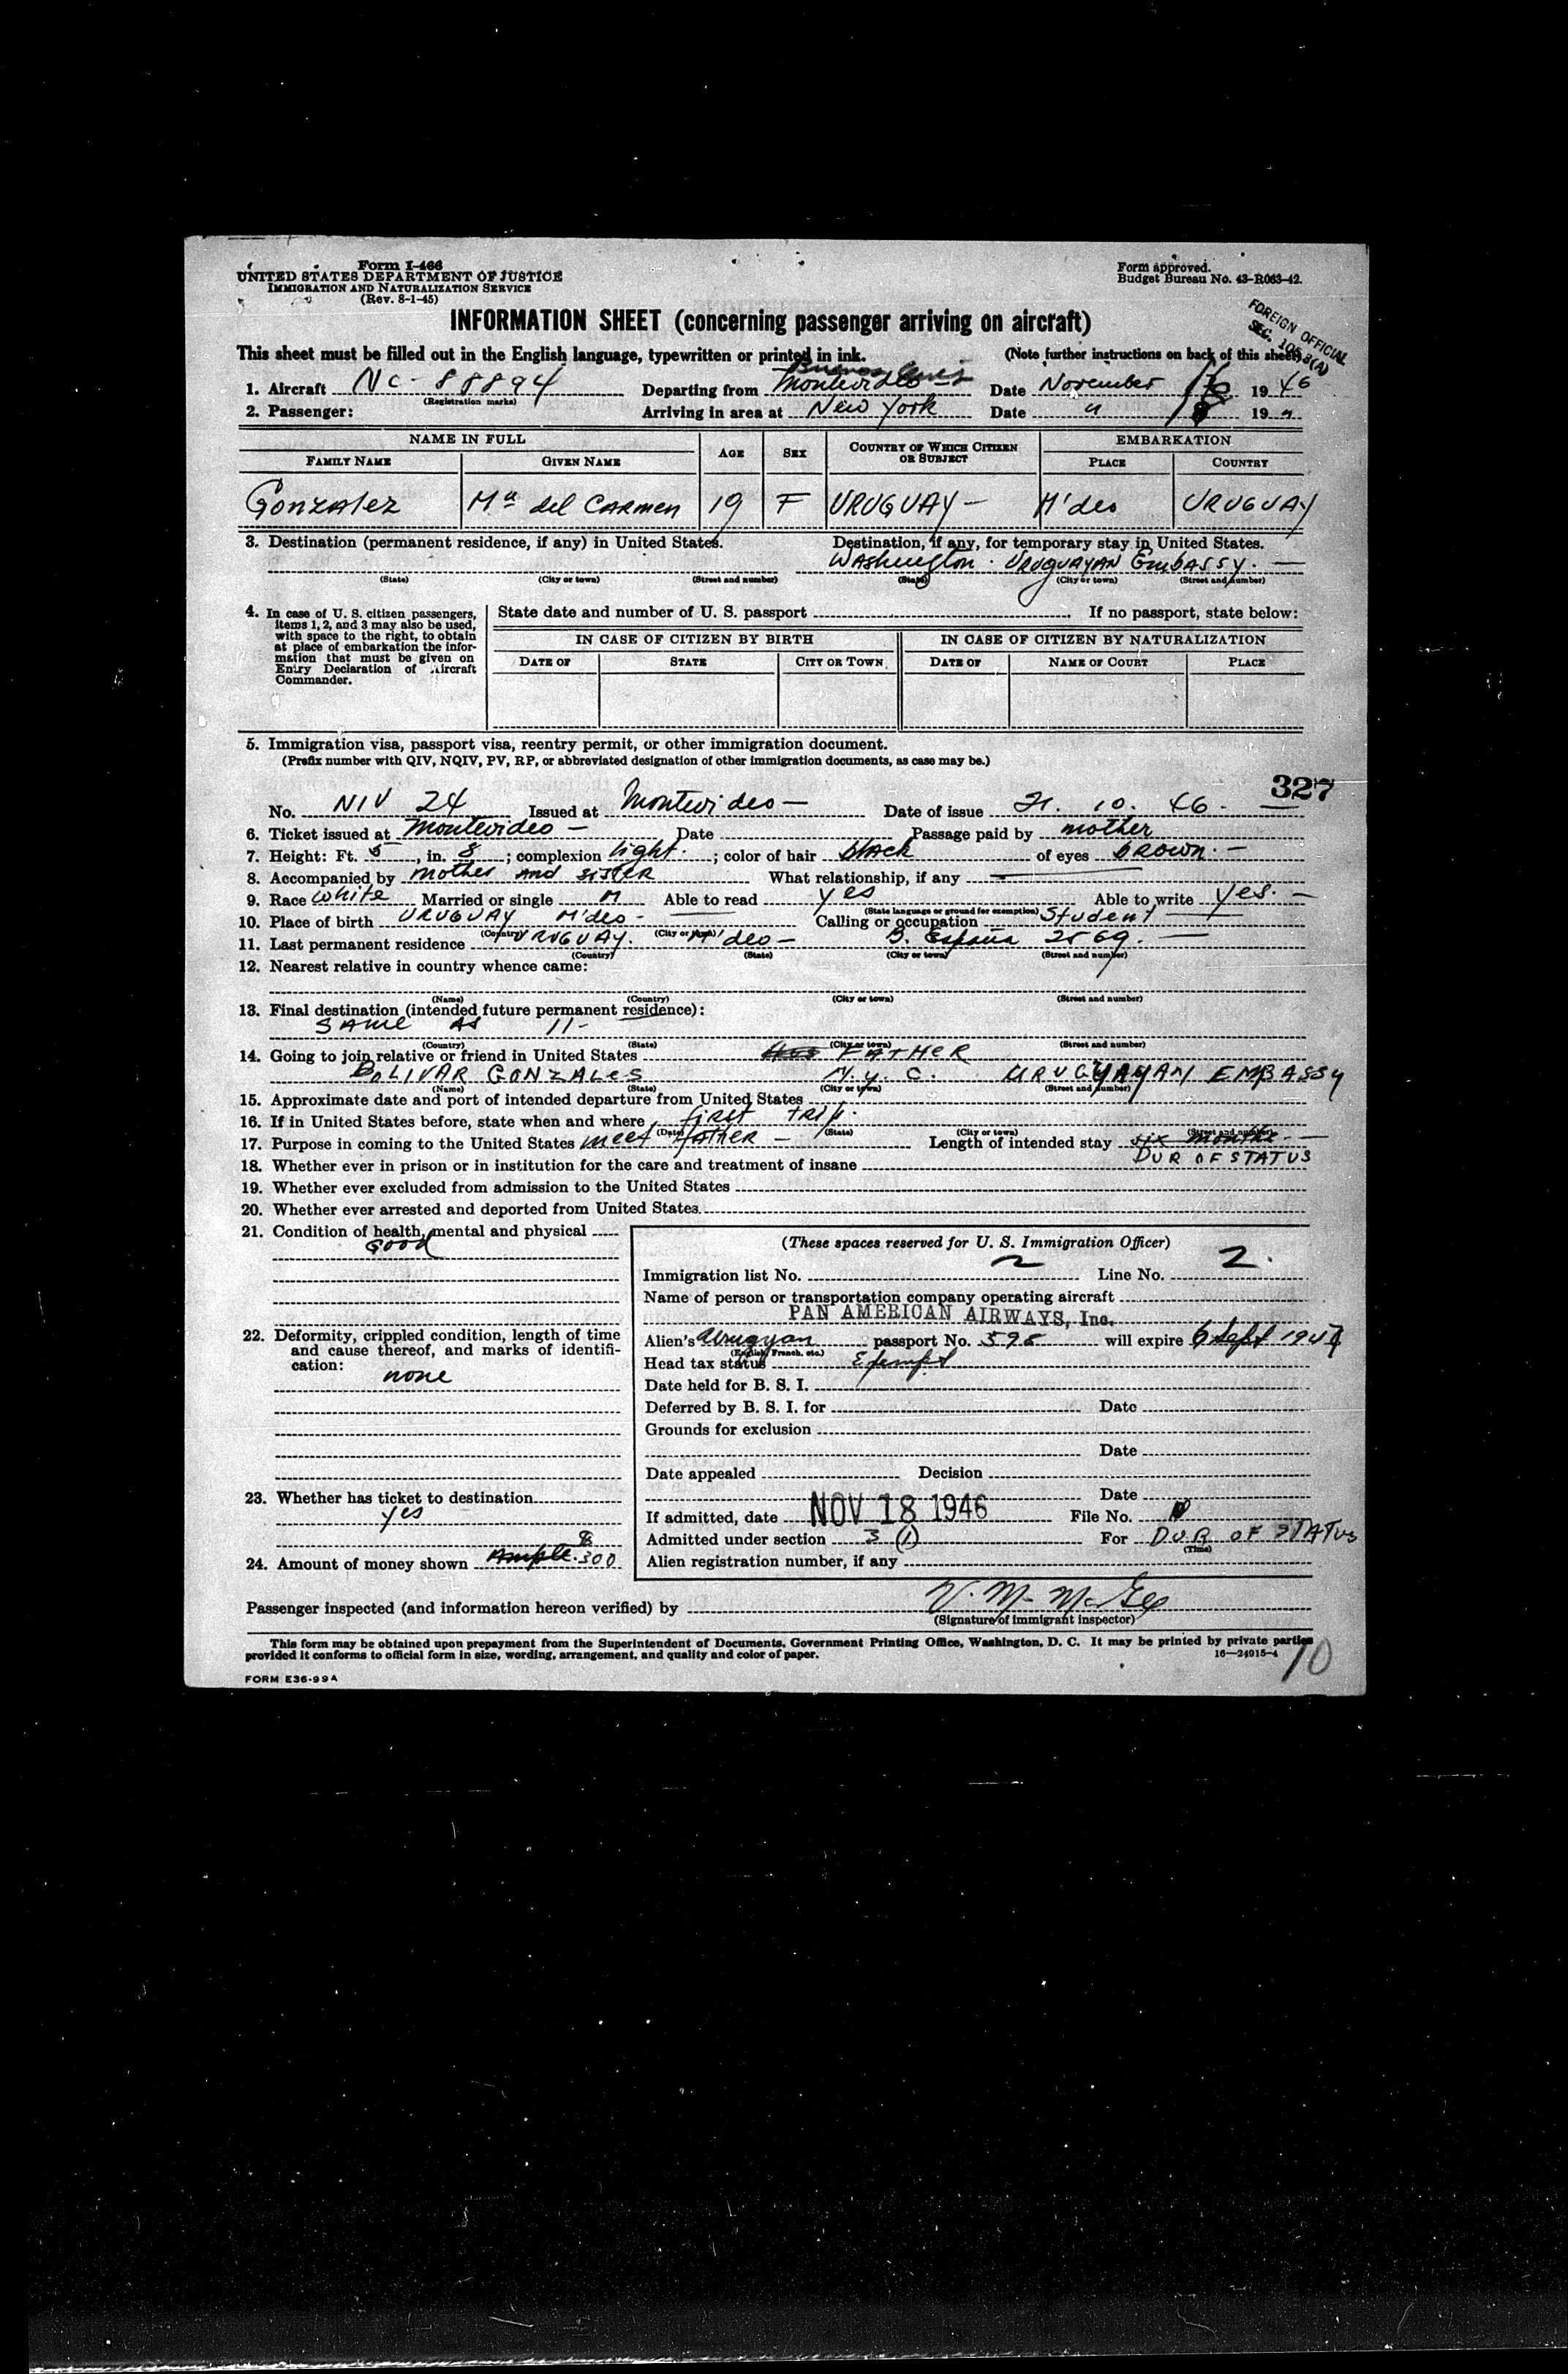 Form I-466
UNITED STATES DEPARTMENT OF JUSTICE
IMMIGRATION AND NATURALIZATION SERVICE
(Rev. 8-1-45)
Form approved.
Budget Bureau No. 43-R063-42.
FOREIGN OFFICIAL
SEC.
INFORMATION SHEET (concerning passenger arriving on aircraft)
This sheet must be filled out in the English language, typewritten or printed in ink. (Note further instructions on back of this sheet)
Buenos Aires
1. Aircraft NC-88894 Departing from Montevideo Date November 19 46
(Registration marks)
2. Passenger: Arriving in area at New York Date " 18 19 "
NAME IN FULL AGE SEX COUNTRY OF WHICH CITIZEN OR SUBJECT EMBARKATION
FAMILY NAME GIVEN NAME PLACE COUNTRY
Gonzalez Ma del Carmen 19 F URUGUAY - M'deo URUGUAY
3. Destination (permanent residence, if any) in United States. Destination, if any, for temporary stay in United States.
Washington. Uruguayan Embassy. -
(State) (City or town) (Street and number) (State) (City or town) (Street and number)
4. In case of U. S. citizen passengers, items 1, 2, and 3 may also be used, with space to the right, to obtain at place of embarkation the information that must be given on Entry Declaration of Aircraft Commander.
State date and number of U. S. passport If no passport, state below:
IN CASE OF CITIZEN BY BIRTH IN CASE OF CITIZEN BY NATURALIZATION
DATE OF STATE CITY OR TOWN DATE OF NAME OF COURT PLACE
5. Immigration visa, passport visa, reentry permit, or other immigration document.
(Prefix number with QIV, NQIV, PV, RP, or abbreviated designation of other immigration documents, as case may be.)
327
No. NIV 24 Issued at Montevideo - Date of issue 21. 10. 46. -
6. Ticket issued at Montevideo - Date Passage paid by mother
7. Height: Ft. 5, in. 8; complexion light.; color of hair black of eyes brown. -
8. Accompanied by mother and sister What relationship, if any
9. Race white Married or single M Able to read yes Able to write yes. -
(State language or ground for exemption)
10. Place of birth URUGUAY M'deo - Calling or occupation Student
(Country) (City or town)
11. Last permanent residence URUGUAY. M'deo - B. España 2569. -
(Country) (State) (City or town) (Street and number)
12. Nearest relative in country whence came:
(Name) (Country) (City or town) (Street and number)
13. Final destination (intended future permanent residence):
SAME AS 11-
(Country) (State) (City or town) (Street and number)
14. Going to join relative or friend in United States FATHER
BOLIVAR GONZALES N.Y.C. URUGUAYAN EMBASSY
(Name) (State) (City or town) (Street and number)
15. Approximate date and port of intended departure from United States
16. If in United States before, state when and where first trip.
(Date) (State) (City or town) (Street and number)
17. Purpose in coming to the United States meet father - Length of intended stay six months. -
DUR OF STATUS
18. Whether ever in prison or in institution for the care and treatment of insane
19. Whether ever excluded from admission to the United States
20. Whether ever arrested and deported from United States
21. Condition of health, mental and physical
Good
22. Deformity, crippled condition, length of time and cause thereof, and marks of identification:
none
23. Whether has ticket to destination
yes
24. Amount of money shown Ample. $300
(These spaces reserved for U. S. Immigration Officer)
Immigration list No. 2 Line No. 2.
Name of person or transportation company operating aircraft
PAN AMERICAN AIRWAYS, Inc.
Alien's passport No. 595 will expire 6 Sept 1947
(English, French, etc.)
Head tax status Exempt
Date held for B. S. I.
Deferred by B. S. I. for Date
Grounds for exclusion
Date
Date appealed Decision
Date
If admitted, date NOV 18 1946 File No.
Admitted under section 3 (1) For DUR OF STATUS
(Time)
Alien registration number, if any
Passenger inspected (and information hereon verified) by V. M. McGee
(Signature of immigrant inspector)
This form may be obtained upon prepayment from the Superintendent of Documents, Government Printing Office, Washington, D. C. It may be printed by private parties
provided it conforms to official form in size, wording, arrangement, and quality and color of paper. 16—24915-4
10
FORM E36-99A